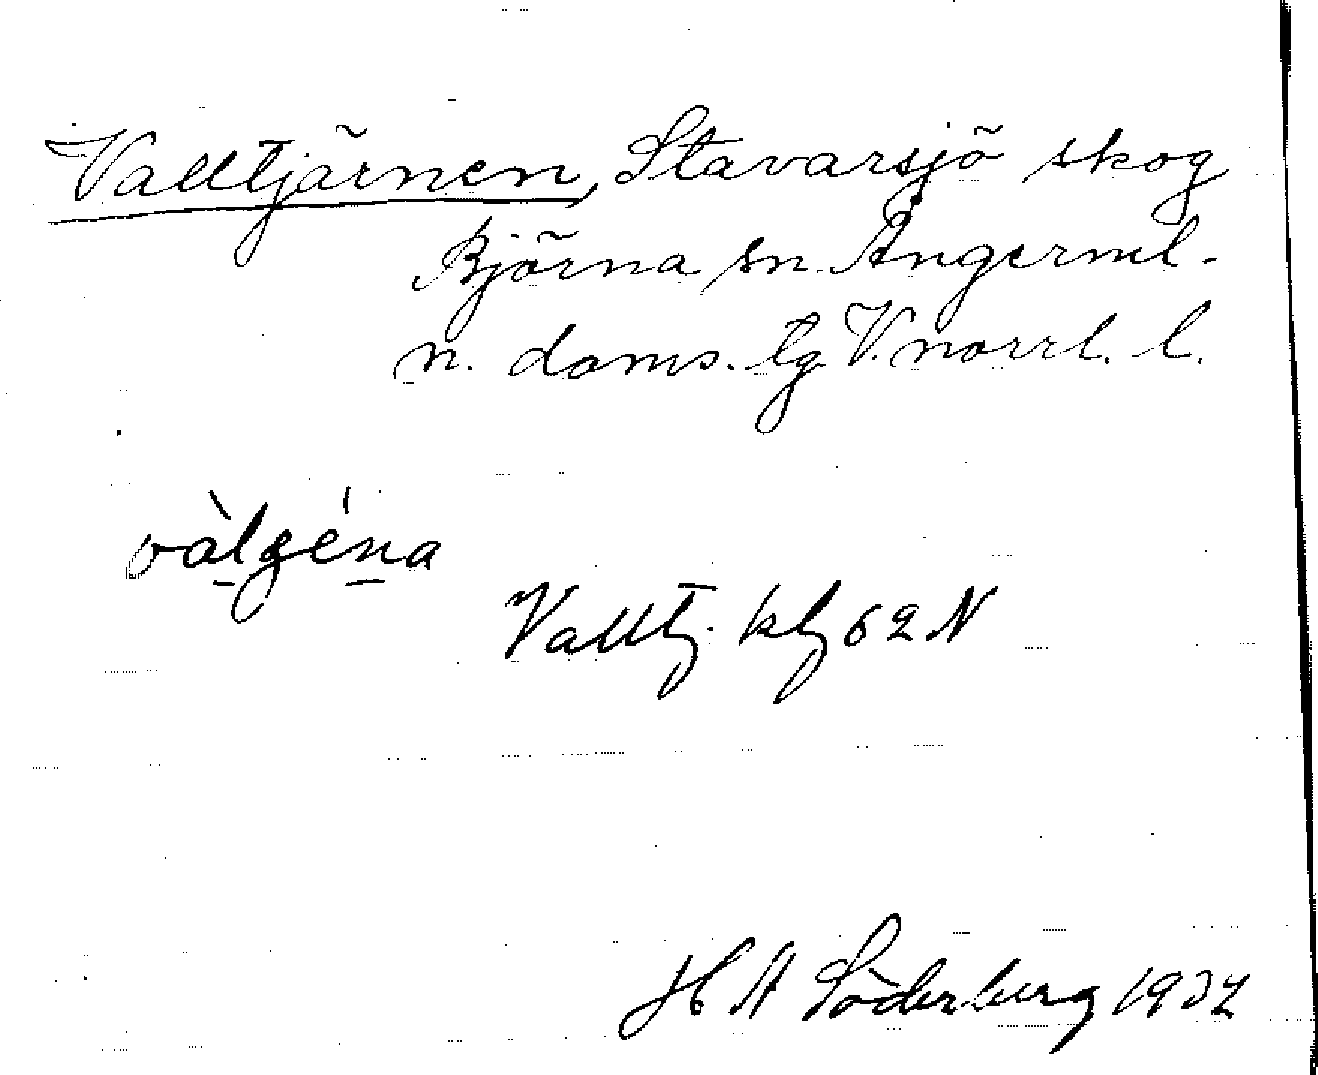 Valltjärnen, Stavarsjö skog
Björna sn. Ångerml.
n. doms. tg V.norrl. l.
vàlgéna
Valltj. kbl 62 N
H A Söderberg 1932